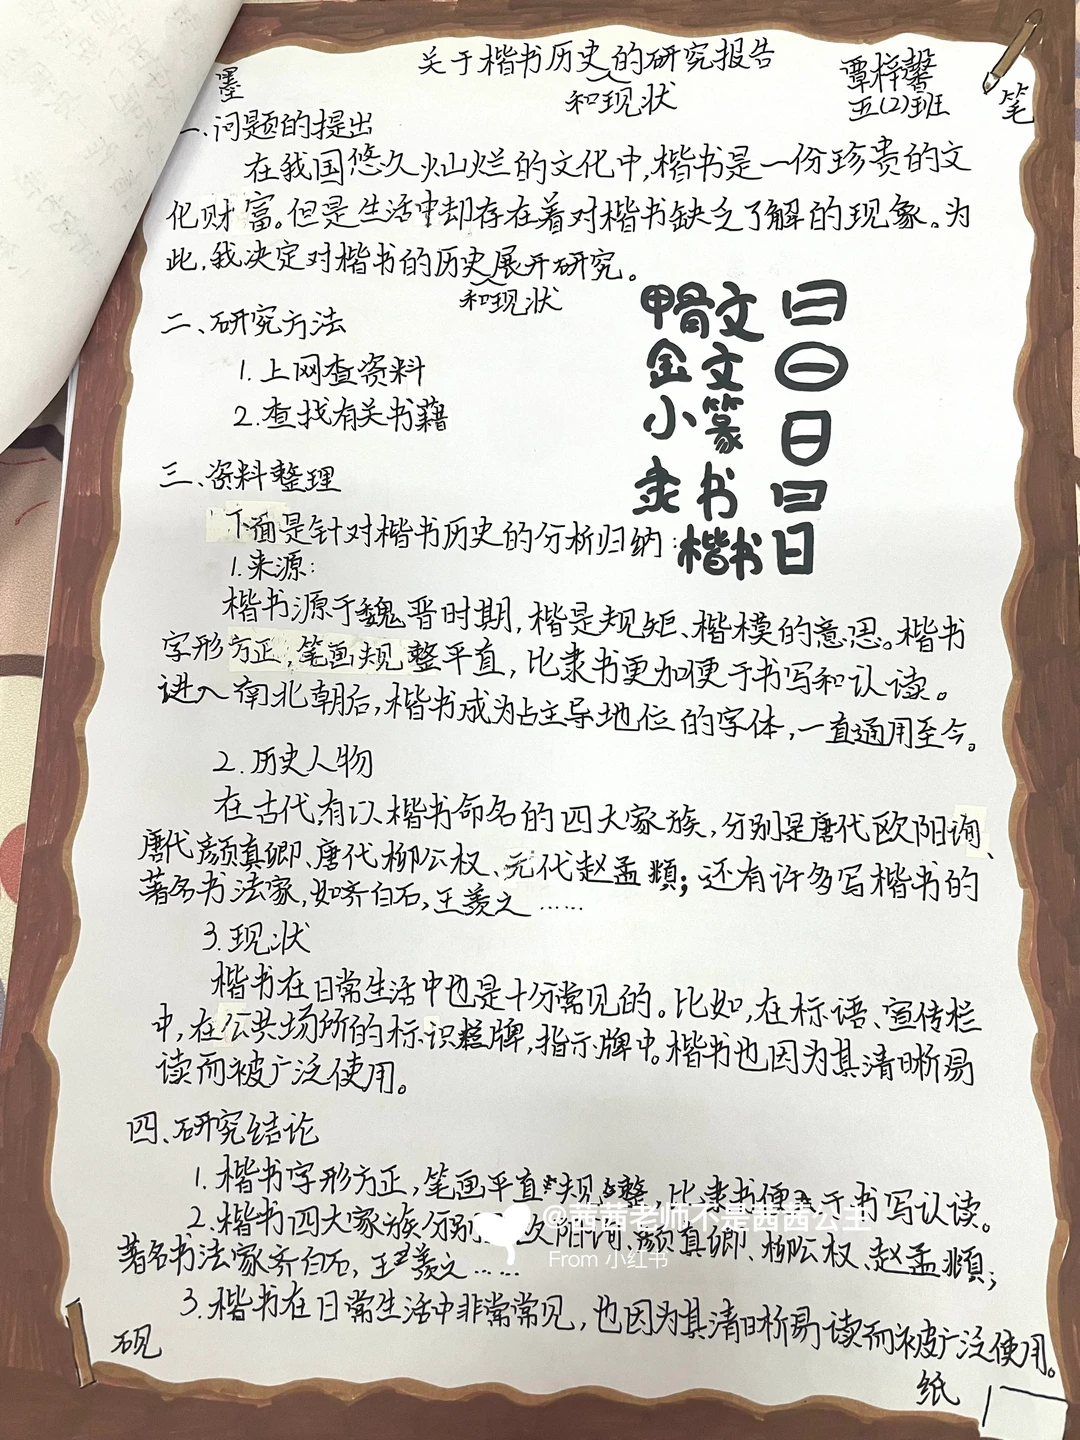 关于楷书历史的研究报告
和现状
谭梓馨
五(2)班
墨
笔
一、问题的提出
在我国悠久灿烂的文化中,楷书是一份珍贵的文
化财富。但是生活中却存在着对楷书缺乏了解的现象。为
此,我决定对楷书的历史展开研究。
和现状
二、研究方法
1.上网查资料
2.查找有关书籍
甲骨文 日
金文 日
小篆 日
隶书 日
楷书 日
三、资料整理
下面是针对楷书历史的分析归纳:
1.来源:
楷书源于魏晋时期,楷是规矩、楷模的意思。楷书
字形方正,笔画规整平直,比隶书更加便于书写和认读。
进入南北朝后,楷书成为占主导地位的字体,一直通用至今。
2.历史人物
在古代,有以楷书命名的四大家族,分别是唐代欧阳询、
唐代颜真卿、唐代柳公权、元代赵孟頫;还有许多写楷书的
著名书法家,如齐白石,王羲之……
3.现状
楷书在日常生活中也是十分常见的。比如,在标语、宣传栏
中,在公共场所的标识牌,指示牌中。楷书也因为其清晰易
读而被广泛使用。
四、研究结论
1.楷书字形方正,笔画平直规整,比隶书便于书写认读。
2.楷书四大家族分别欧阳询、颜真卿、柳公权、赵孟頫;
著名书法家齐白石,王羲之……
3.楷书在日常生活中非常常见,也因为其清晰易读而被广泛使用。
砚
纸
@茜茜老师不是茜茜公主
From 小红书